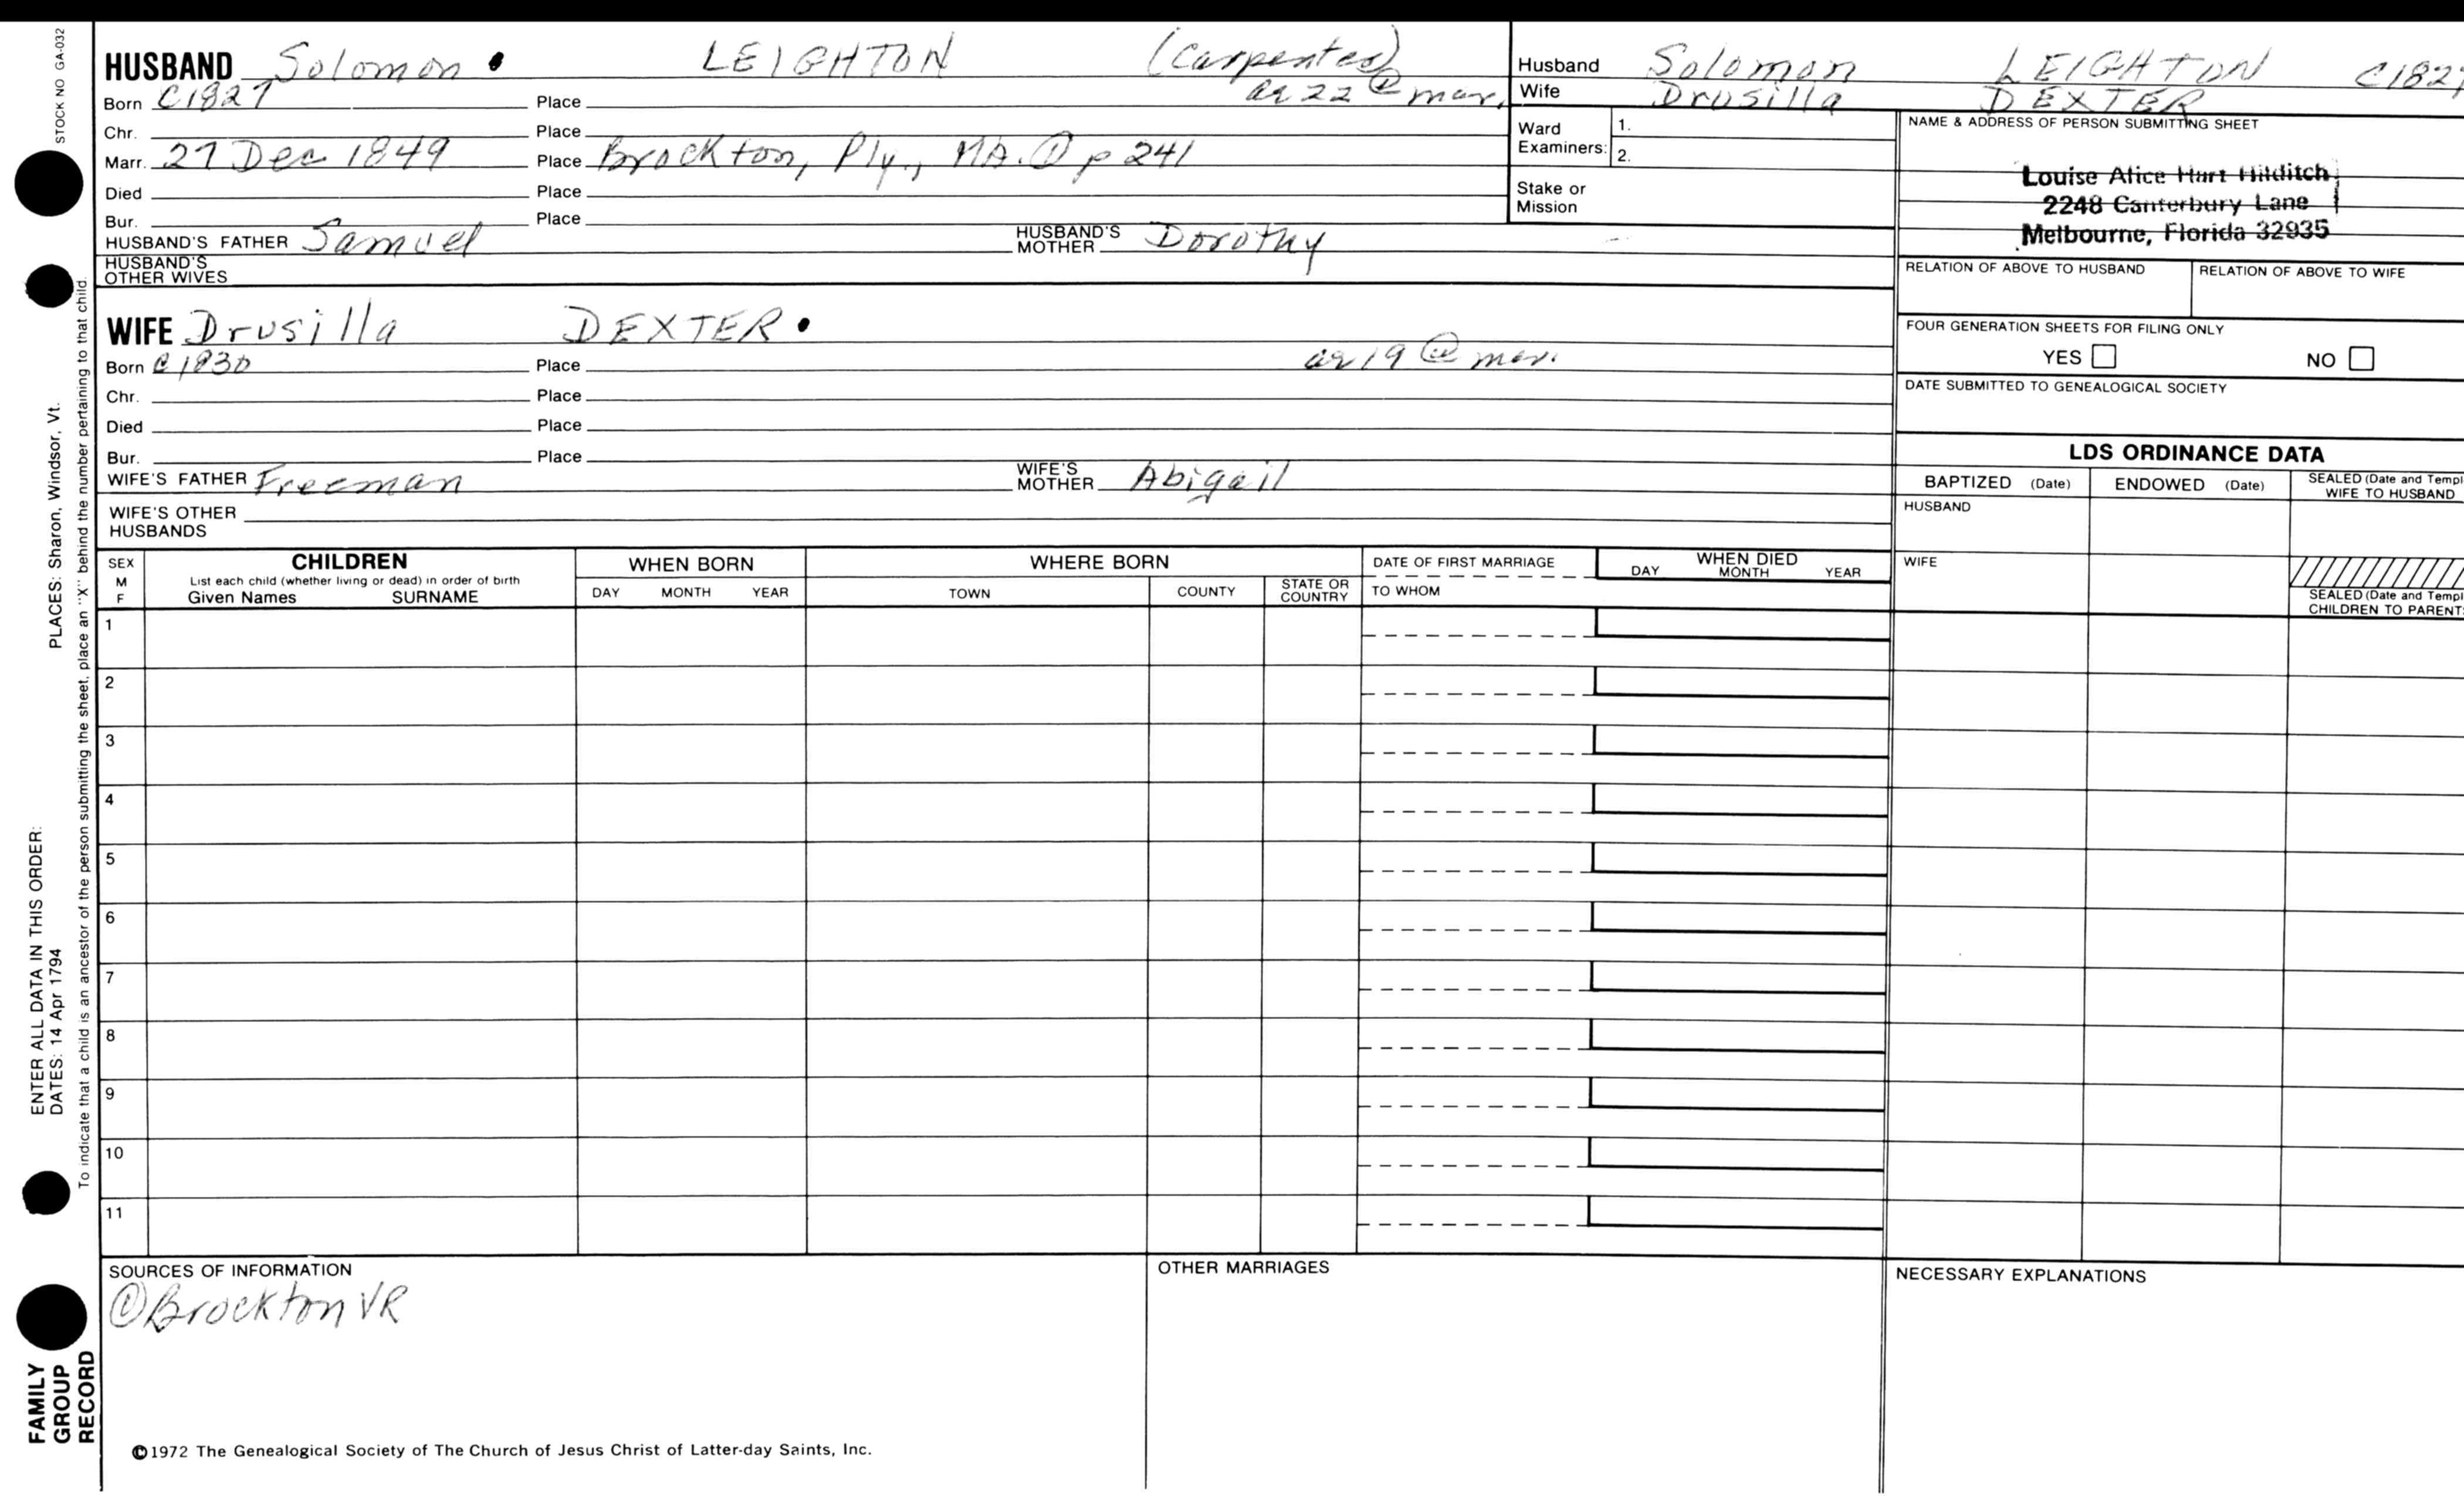 STOCK NO GA-032
HUSBAND Solomon LEIGHTON (Carpenter)
Born C1827 Place ae 22 @ mar.
Chr. Place
Marr. 27 Dec 1849 Place Brockton, Ply., MA. ① p 241
Died Place
Bur. Place
HUSBAND'S FATHER Samuel HUSBAND'S MOTHER Dorothy
HUSBAND'S OTHER WIVES
WIFE Drusilla DEXTER
Born C1830 Place ae 19 @ mar.
Chr. Place
Died Place
Bur. Place
WIFE'S FATHER Freeman WIFE'S MOTHER Abigail
WIFE'S OTHER HUSBANDS
Husband Solomon LEIGHTON C1827
Wife Drusilla DEXTER
Ward Examiners: 1.
2.
Stake or Mission
NAME & ADDRESS OF PERSON SUBMITTING SHEET
Louise Alice Hart Hilditch
2248 Canterbury Lane
Melbourne, Florida 32935
RELATION OF ABOVE TO HUSBAND RELATION OF ABOVE TO WIFE
FOUR GENERATION SHEETS FOR FILING ONLY
YES NO
DATE SUBMITTED TO GENEALOGICAL SOCIETY
LDS ORDINANCE DATA
BAPTIZED (Date) ENDOWED (Date) SEALED (Date and Templ
WIFE TO HUSBAND
HUSBAND
WIFE
SEALED (Date and Templ
CHILDREN TO PARENT
SEX
M
F
CHILDREN
List each child (whether living or dead) in order of birth
Given Names SURNAME
WHEN BORN
DAY MONTH YEAR
WHERE BORN
TOWN COUNTY STATE OR COUNTRY
DATE OF FIRST MARRIAGE
TO WHOM
WHEN DIED
DAY MONTH YEAR
1
2
3
4
5
6
7
8
9
10
11
SOURCES OF INFORMATION
① Brockton VR
OTHER MARRIAGES
NECESSARY EXPLANATIONS
©1972 The Genealogical Society of The Church of Jesus Christ of Latter-day Saints, Inc.
FAMILY
GROUP
RECORD
ENTER ALL DATA IN THIS ORDER:
DATES: 14 Apr 1794 PLACES: Sharon, Windsor, Vt.
To indicate that a child is an ancestor of the person submitting the sheet, place an "X" behind the number pertaining to that child.